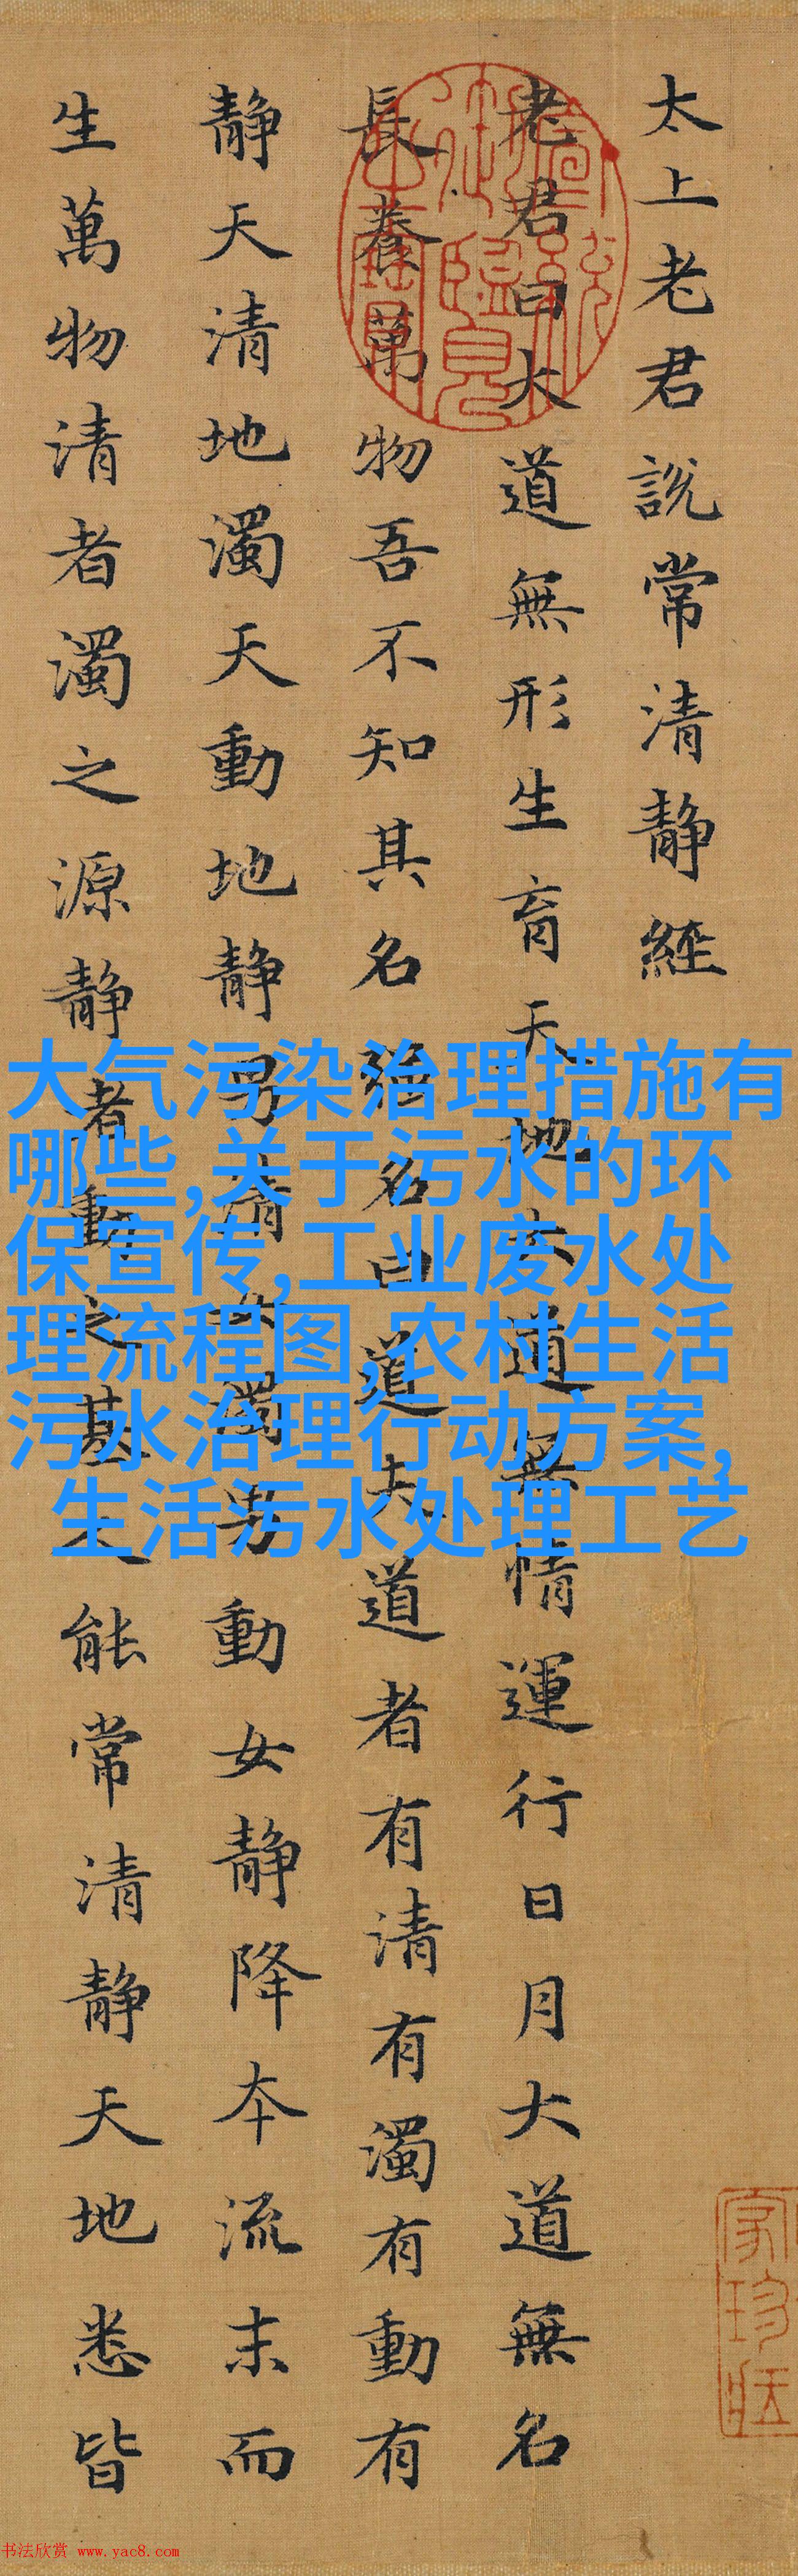 太上老君說常清靜經
老君曰大道無形生育天地大道無情運行日月大道無名
長養萬物吾不知其名強名曰道夫道者有清有濁有動有
靜天清地濁天動地靜男清女濁男動女靜降本流末而
生萬物清者濁之源靜者動之基人能常清靜天地悉皆
大气污染治理措施有
哪些,关于污水的环
保宣传,工业废水处
理流程图,农村生活
污水治理行动方案,
生活污水处理工艺
書法欣赏 www.yac8.com